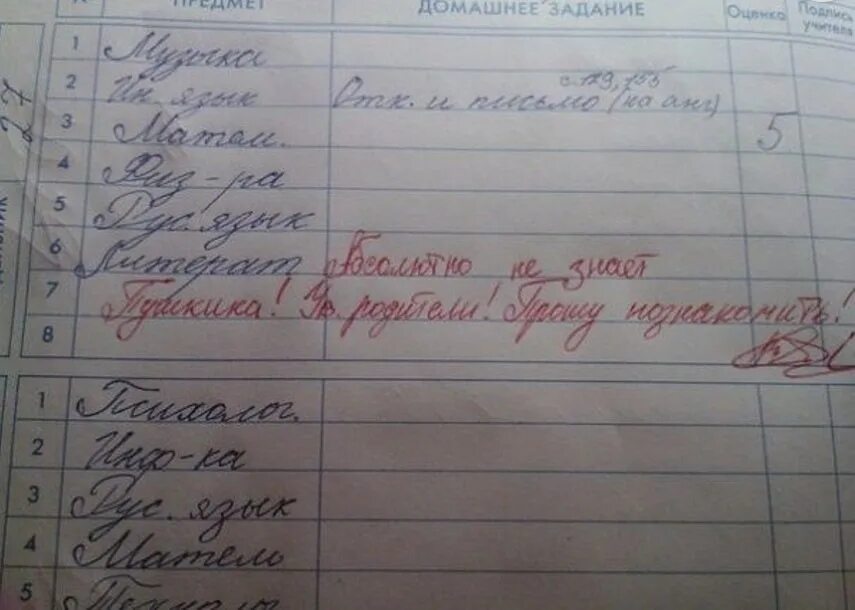 ПРЕДМЕТ ДОМАШНЕЕ ЗАДАНИЕ Оценка Подпись учителя
27
1 Музыка
2 Ин. язык Отк. и письмо (на анг) с. 119, 155
3 Матем. 5
4 Физ-ра
5 Рус. язык
6 Литерат Абсолютно не знает
7 Пушкина! Ув. родители! Прошу познакомить!
8
1 Психолог.
2 Инф-ка
3 Рус. язык
4 Матем
5